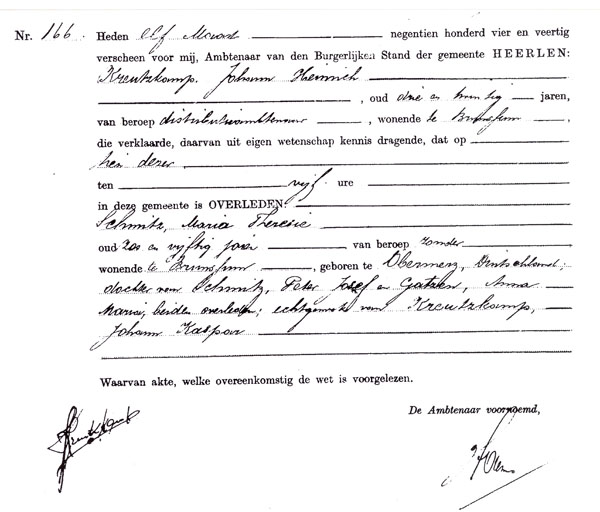 Nr. 166. Heden elf Maart negentien honderd vier en veertig
verscheen voor mij, Ambtenaar van den Burgerlijken Stand der gemeente HEERLEN:
Kreutzkamp, Johann Heinrich
, oud drie en twintig jaren,
van beroep distributieambtenaar, wonende te Brunssum,
die verklaarde, daarvan uit eigen wetenschap kennis dragende, dat op
tien dezer
ten vijf ure
in deze gemeente is OVERLEDEN:
Schmitz, Maria Theresie
oud zes en vijftig jaar van beroep zonder
wonende te Brunssum, geboren te Obermerz, Duitschland;
dochter van Schmitz, Peter Josef en Gatzen, Anna
Maria, beiden overleden; echtgenoote van Kreutzkamp,
Johann Kaspar
Waarvan akte, welke overeenkomstig de wet is voorgelezen.
De Ambtenaar voornoemd,
Kreutzkamp